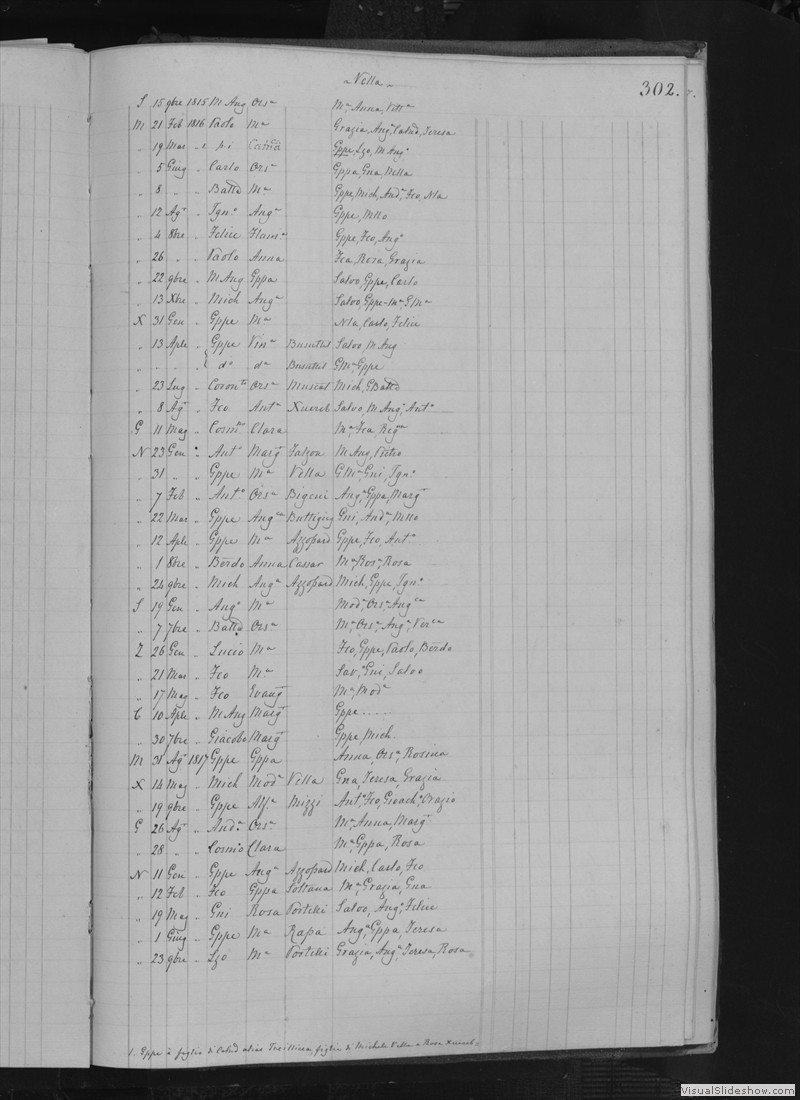 "Vella"
302.
S 15 9bre 1815 M Ang Orsa Ma Anna, Vitta
M 21 Feb 1816 Paolo Ma Grazia, Anga, Calcd, Teresa
" 19 Mar " 1. Gppe, Lzo, M Ango
" 5 Giug " Carlo Orsa Gppa, Gna, Mlla
" 8 " " Batta Ma Gppe, Mich, Andr, Fco, Nla
" 12 Ago " Igno Anga Gppe, Mllo
" 4 8bre " Felice Flama Gppe, Fco, Ango
" 26 " " Paolo Anna Fca, Rosa, Grazia
" 22 9bre " M Ang Gppa Salvo, Gppe, Carlo
" 13 Xbre " Mich Anga Salvo, Gppe-Ma, G Ma
X 31 Gen " Gppe Ma Nla, Carlo, Felice
" 13 Aple " Gppe Vina Busuttil Salvo, M Ang
" " " " do da Busuttil G Ma, Gppe
" 23 Lug " Coronto Orsa Muscat Mich, G Batta
" 8 Ago " Fco Anta Xuereb Salvo, M Ang, Anto
G 11 Mag " Cosmo Clara Ma, Fca, Rega
N 23 Gen " Anto Marga Falzon M Ang, Pietro
" 31 " " Gppe Ma Vella G Ma, Gni, Igno
" 7 Feb " Anto Orsa Bigeni Anga, Gppa, Marga
" 22 Mar " Gppe Angca Buttigieg Gni, Andr, Mllo
" 12 Aple " Gppe Ma Azzopard Gppe, Fco, Anto
" 1 8bre " Bordo Anna Cassar Ma, Rosa, Rosa
" 24 9bre " Mich Anga Azzopard Mich, Gppe, Igno
S 19 Gen " Ango Ma Moda, Orsa, Angca
" 7 7bre " Batta Orsa Ma, Orsa, Anga, Verca
Z 26 Gen " Lucio Ma Fco, Gppe, Paolo, Bordo
" 21 Mar " Fco Ma Savo, Gni, Salvo
" 17 Mag " Fco Evanga Ma, Moda
C 10 Aple " M Ang Marga Gppe .....
" 30 7bre " Giacobo Marga Gppe, Mich.
M 31 Ago 1817 Gppe Gppa Anna, Orsa, Rosina
X 14 Mag " Mich Moda Vella Gna, Teresa, Grazia
" 19 9bre " Gppe Alfa Mizzi Anto, Fco, Gioacho, Orazio
G 26 Ago " Anda Orsa Ma, Anna, Marga
" 28 " " Cosmo Clara Ma, Gppa, Rosa
N 11 Gen " Gppe Anga Azzopard Mich, Carlo, Fco
" 12 Feb " Fco Gppa Soltana Ma, Grazia, Gna
" 19 Mag " Gni Rosa Portelli Salvo, Ango, Felice
" 1 Giug " Gppe Ma Rapa Anga, Gppa, Teresa
" 23 9bre " Lzo Ma Portelli Grazia, Anga, Teresa, Rosa
1. Gppe è figlio di alias figlio di Michele Vella e Rosa Xuereb
VisualSlideshow.com